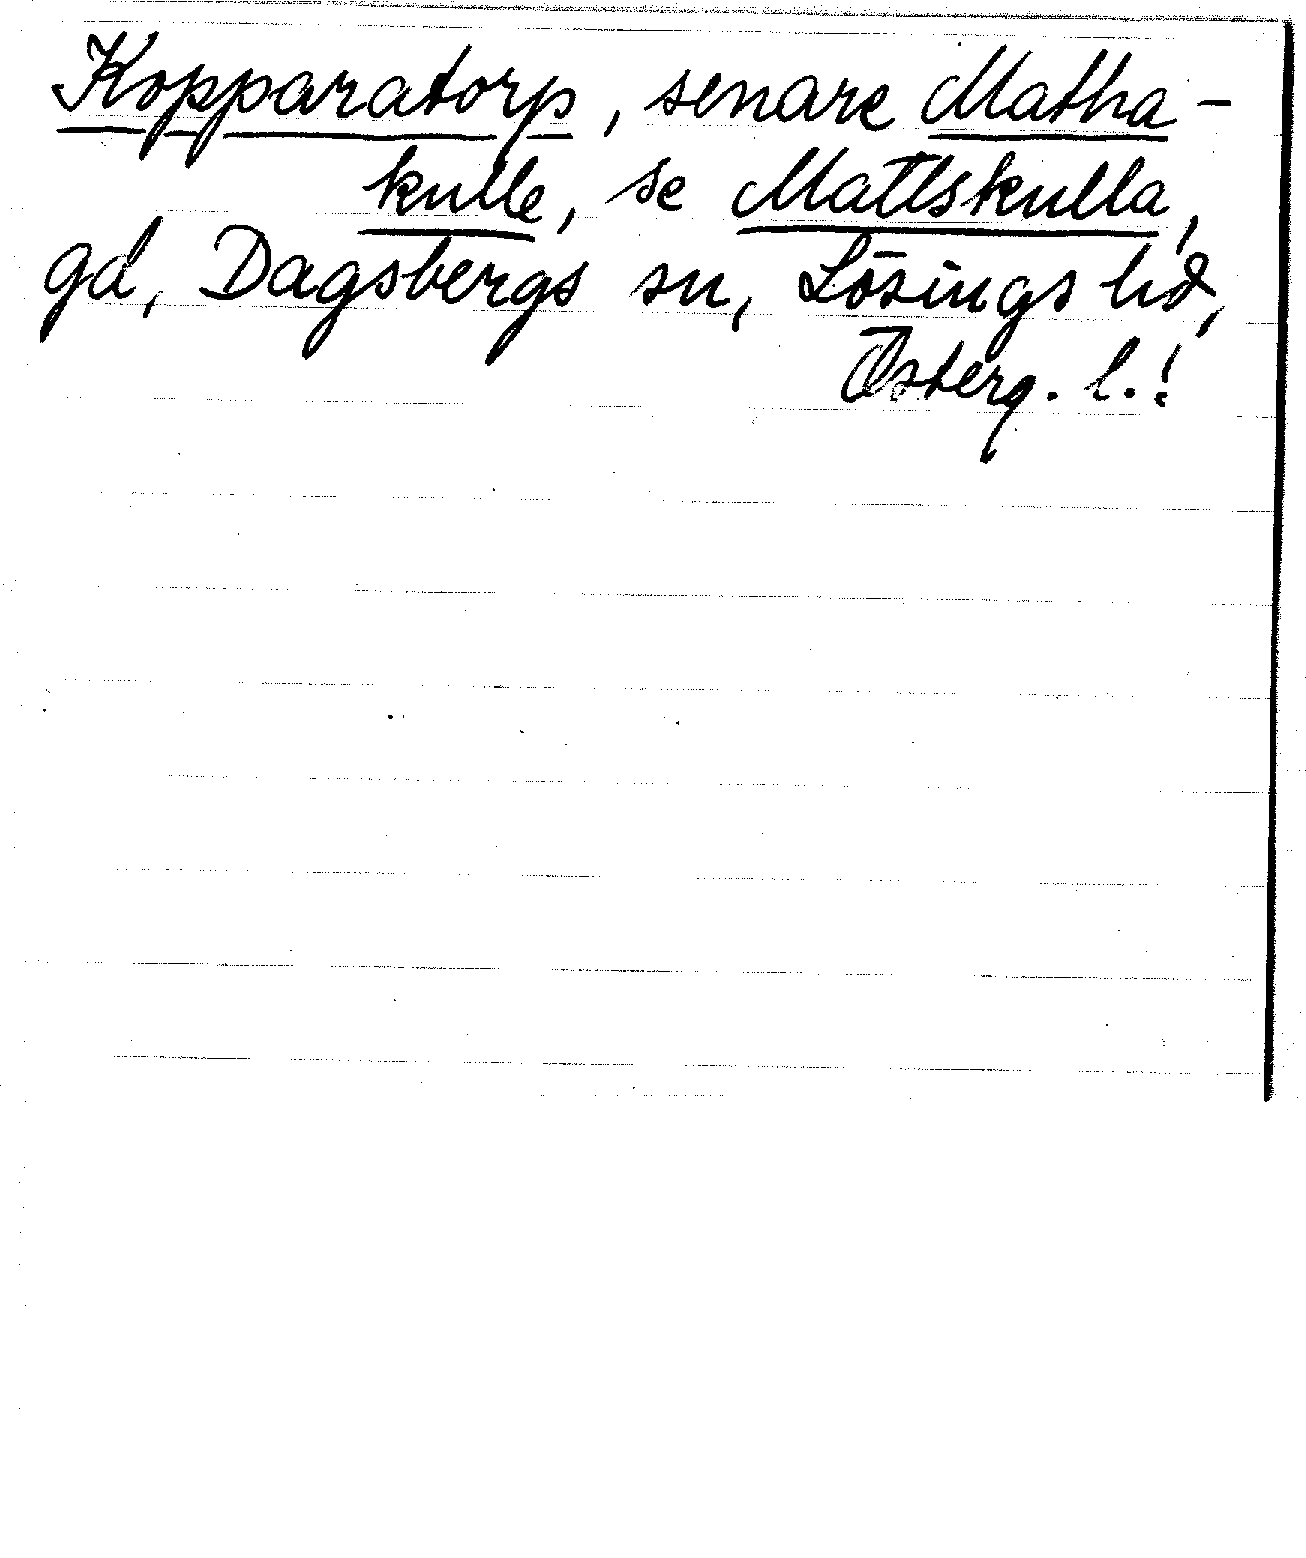 Kopparatorp, senare Matha-
kulle, se Mattskulla,
gd, Dagsbergs sn, Lösings hd,
Österg. l.!